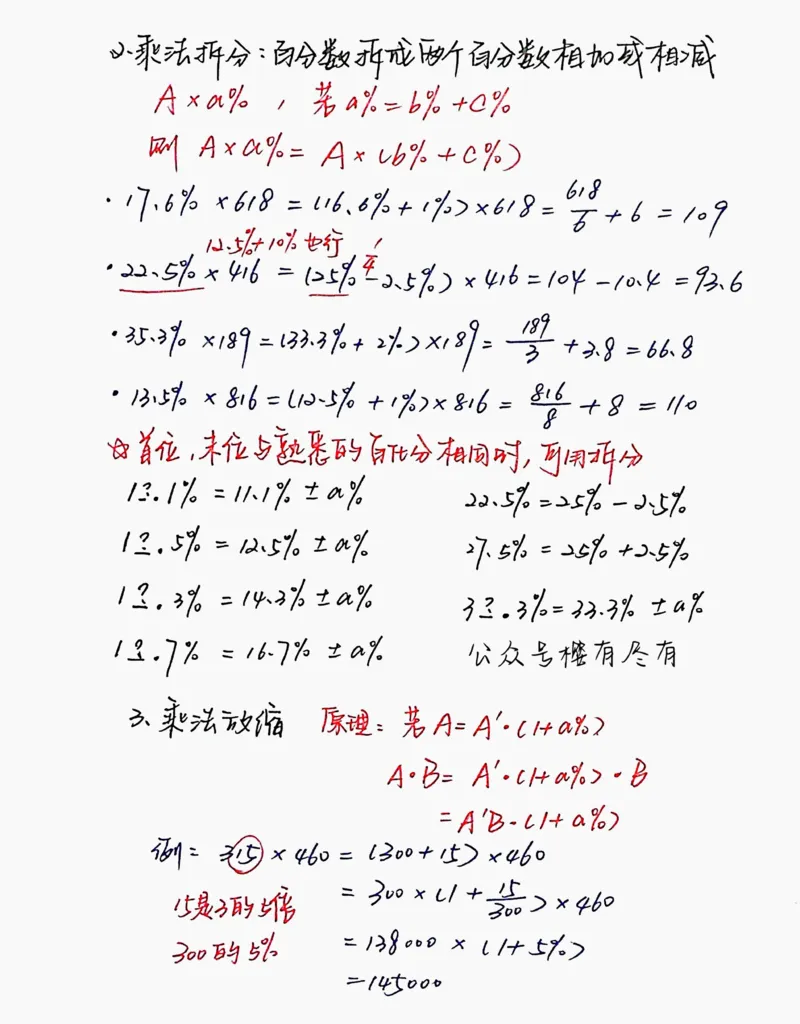 2.乘法拆分:百分数拆成两个百分数相加或相减
A×a%,若a%=b%+c%
则 A×a%=A×(b%+c%)
·17.6%×618=(16.6%+1%)×618=618/6+6=109
12.5%+10%也行 1/4
·22.5%×416=(25%-2.5%)×416=104-10.4=93.6
·35.3%×189=(33.3%+2%)×189=189/3+3.8=66.8
·13.5%×816=(12.5%+1%)×816=816/8+8=110
☆首位,末位与熟悉的百化分相同时,可用拆分
1?.1%=11.1%±a% 22.5%=25%-2.5%
1?.5%=12.5%±a% 27.5%=25%+2.5%
1?.3%=14.3%±a% 3?.3%=33.3%±a%
1?.7%=16.7%±a% 公众号楼有尽有
3、乘法放缩 原理:若A=A'·(1+a%)
A·B=A'·(1+a%)·B
=A'B·(1+a%)
例:315×460=(300+15)×460
15是3的5倍 =300×(1+15/300)×460
300的5% =138000×(1+5%)
=145000